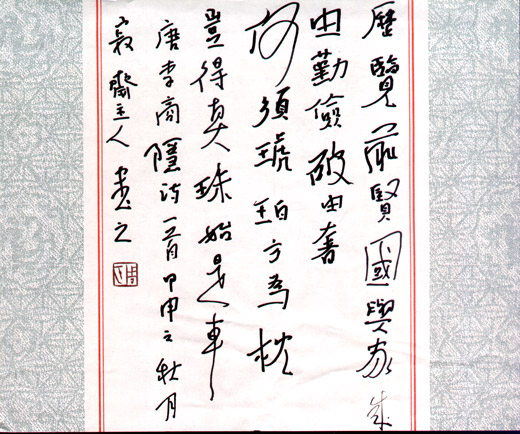 歷覽前賢國與家成
由勤儉破由奢
何須琥珀方為枕
豈得真珠始是車
唐李商隱詩一首甲申之秋月
齋主人書之